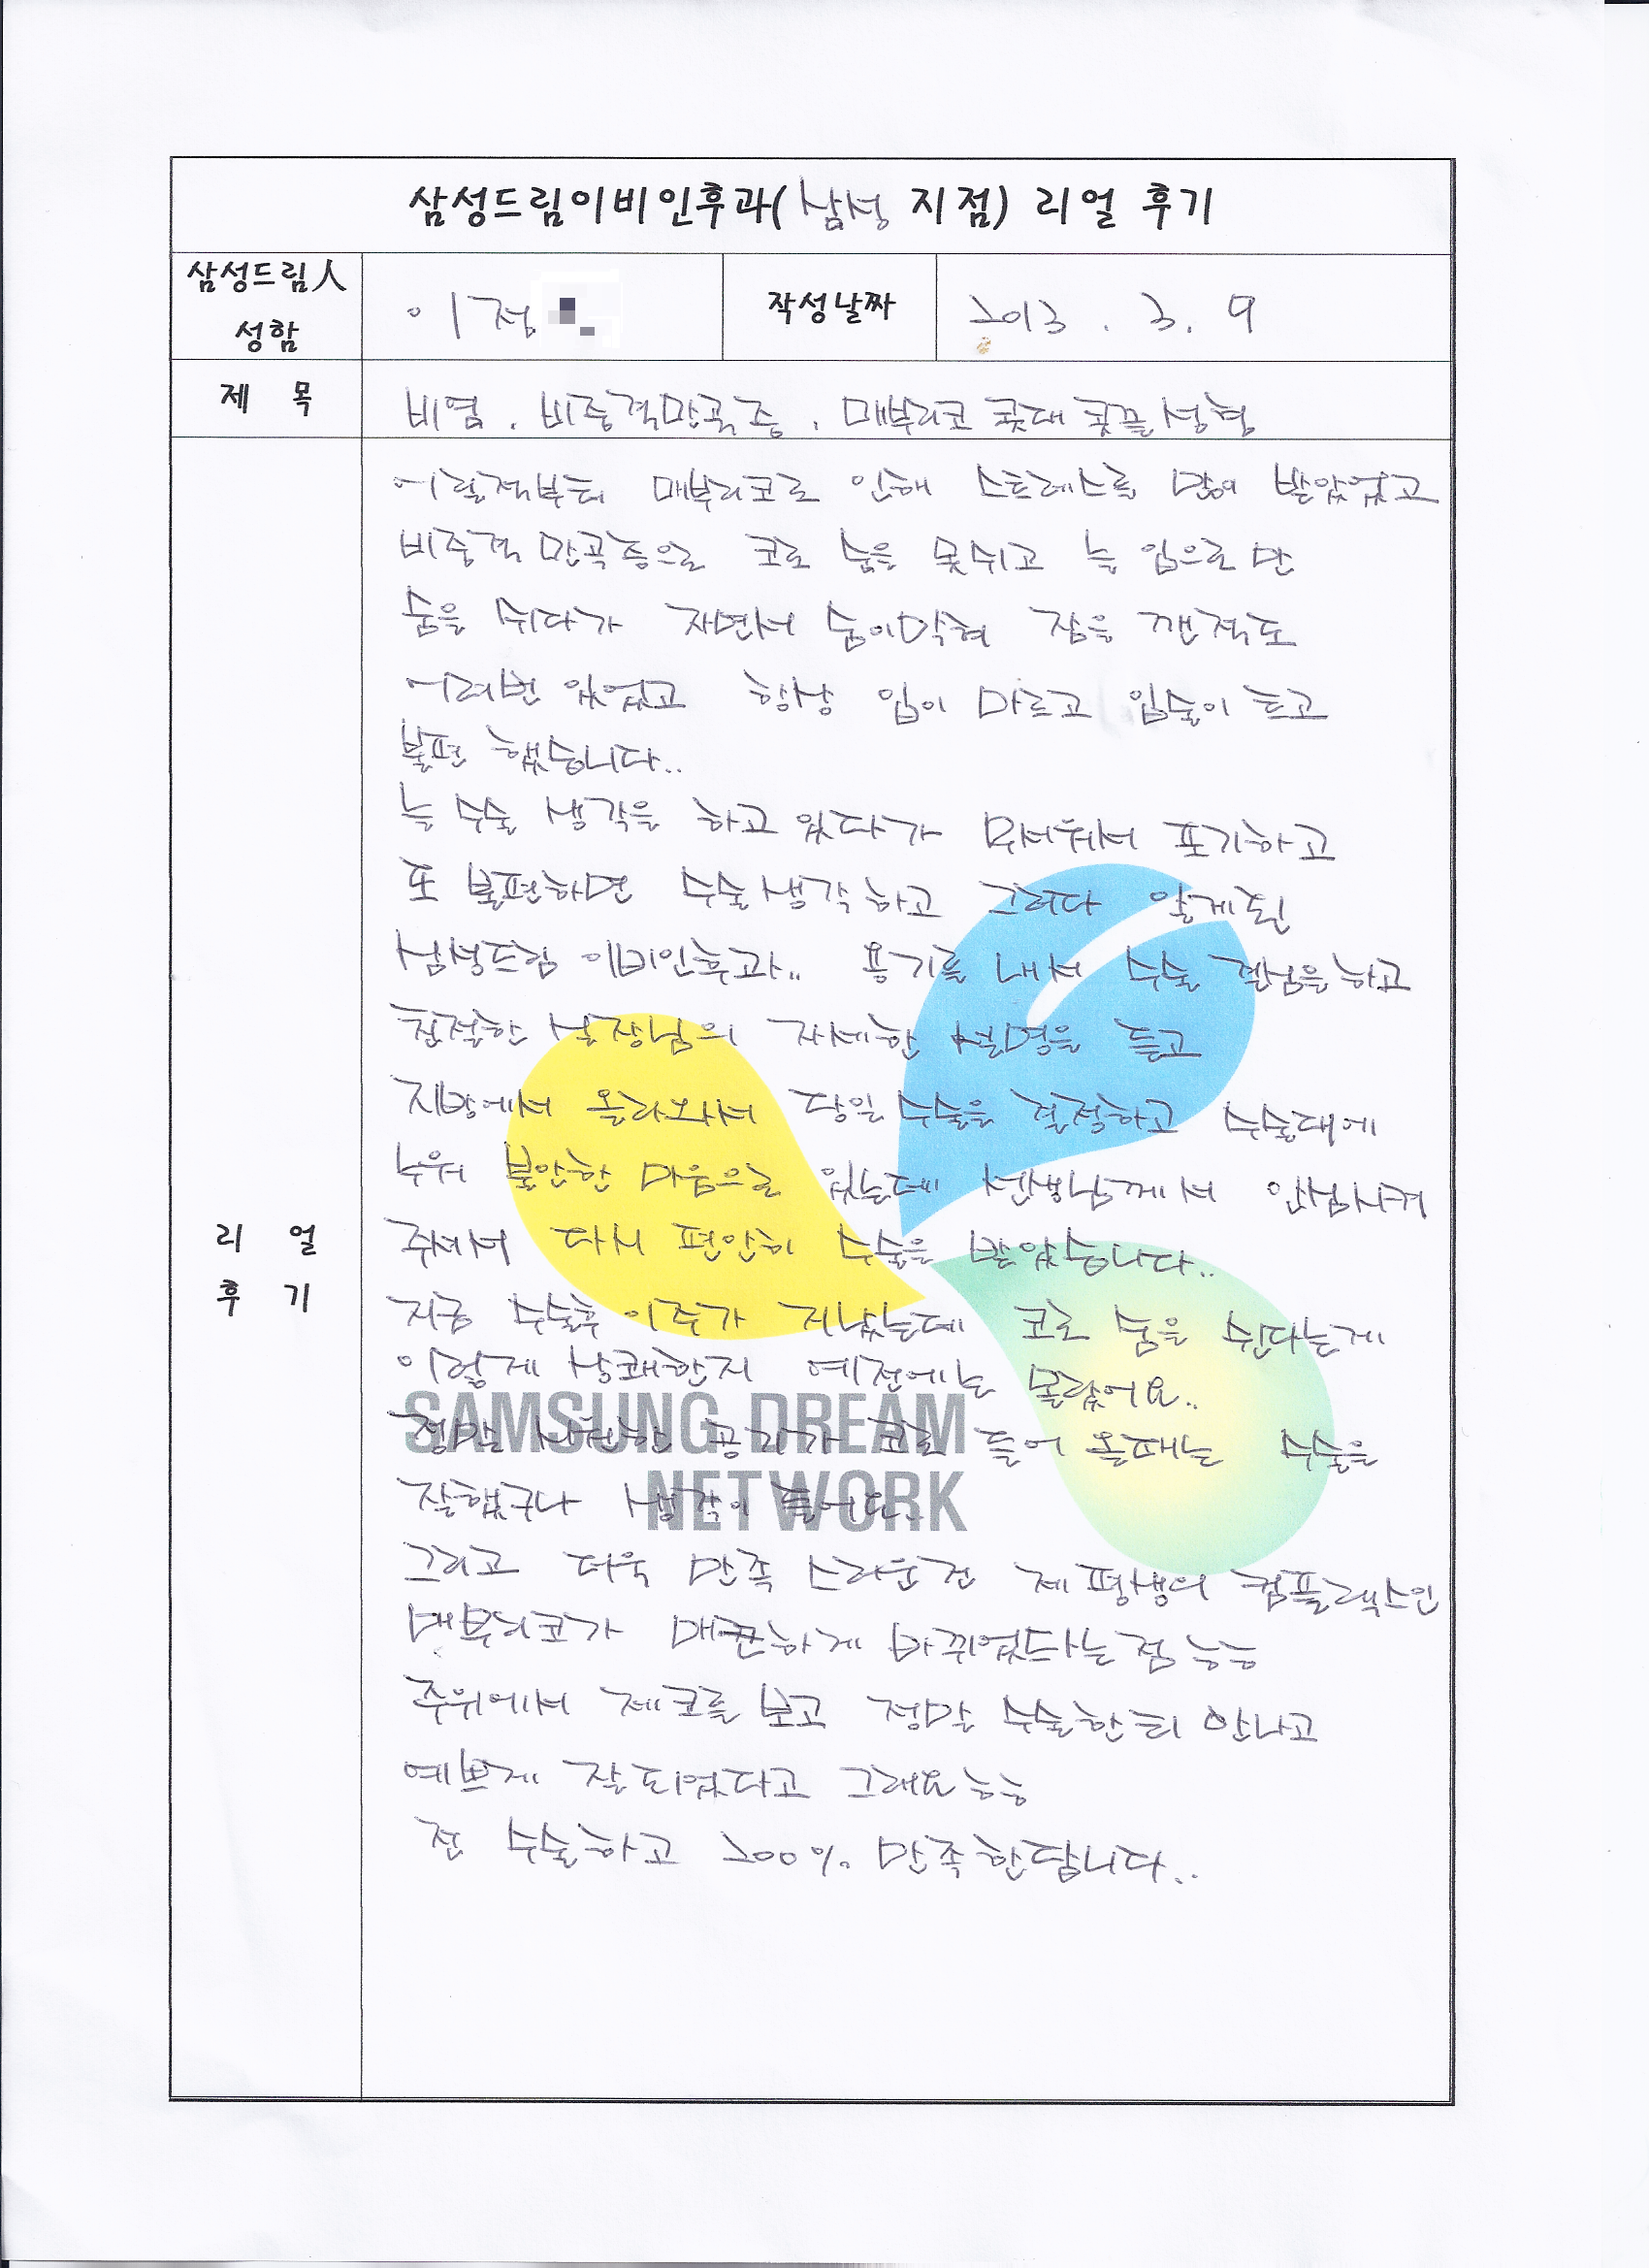 삼성드림이비인후과(삼성 지점) 리얼 후기
삼성드림人
성함
이정
작성날짜
2013. 3. 9
제 목
비염. 비중격만곡증. 매부리코 콧대 콧끝성형
어릴적부터 매부리코로 인해 스트레스를 많이 받았었고
비중격 만곡증으로 코로 숨을 못쉬고 늘 입으로만
숨을 쉬다가 자면서 숨이막혀 잠을 깬적도
여러번 있었고 항상 입이 마르고 입술이 트고
불편 했습니다..
늘 수술 생각을 하고 있다가 무서워서 포기하고
또 불편하면 수술생각하고 그러다 알게된
삼성드림 이비인후과.. 용기를 내서 수술 결심을하고
친절한 실장님의 자세한 설명을 듣고
지방에서 올라와서 당일 수술을 결정하고 수술대에
누워 불안한 마음으로 있는데 선생님께서 안심시켜
주셔서 다시 편안히 수술을 받았습니다..
지금 수술후 이주가 지났는데 코로 숨을 쉰다는게
이렇게 상쾌한지 예전에는 몰랐어요..
정말 시원한 공기가 코로 들어 올때는 수술을
잘했구나 생각이 들어요..
그리고 더욱 만족 스러운건 제평생의 컴플렉스인
매부리코가 매끈하게 바뀌었다는점 ㅎㅎ
주위에서 제코를 보고 정말 수술한티 안나고
예쁘게 잘되었다고 그래요ㅎㅎ
전 수술하고 200% 만족한답니다..
리 얼
후 기
SAMSUNG DREAM
NETWORK